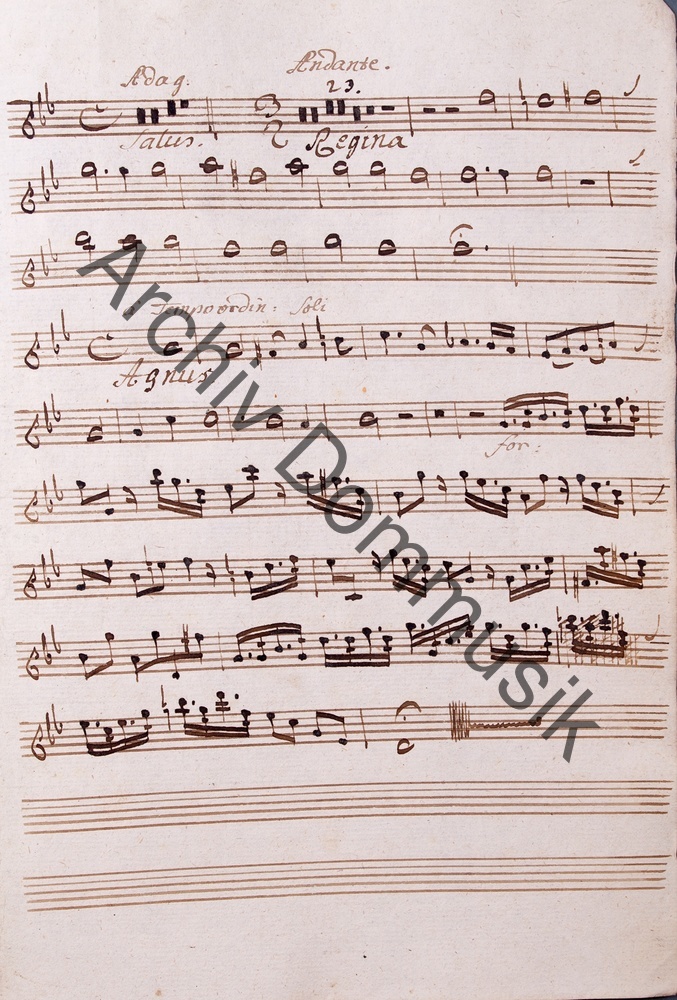 Adag. Andante.
23.
Salus. Regina
Tempo ordin: Soli
Agnus
for:
Archiv Dommusik